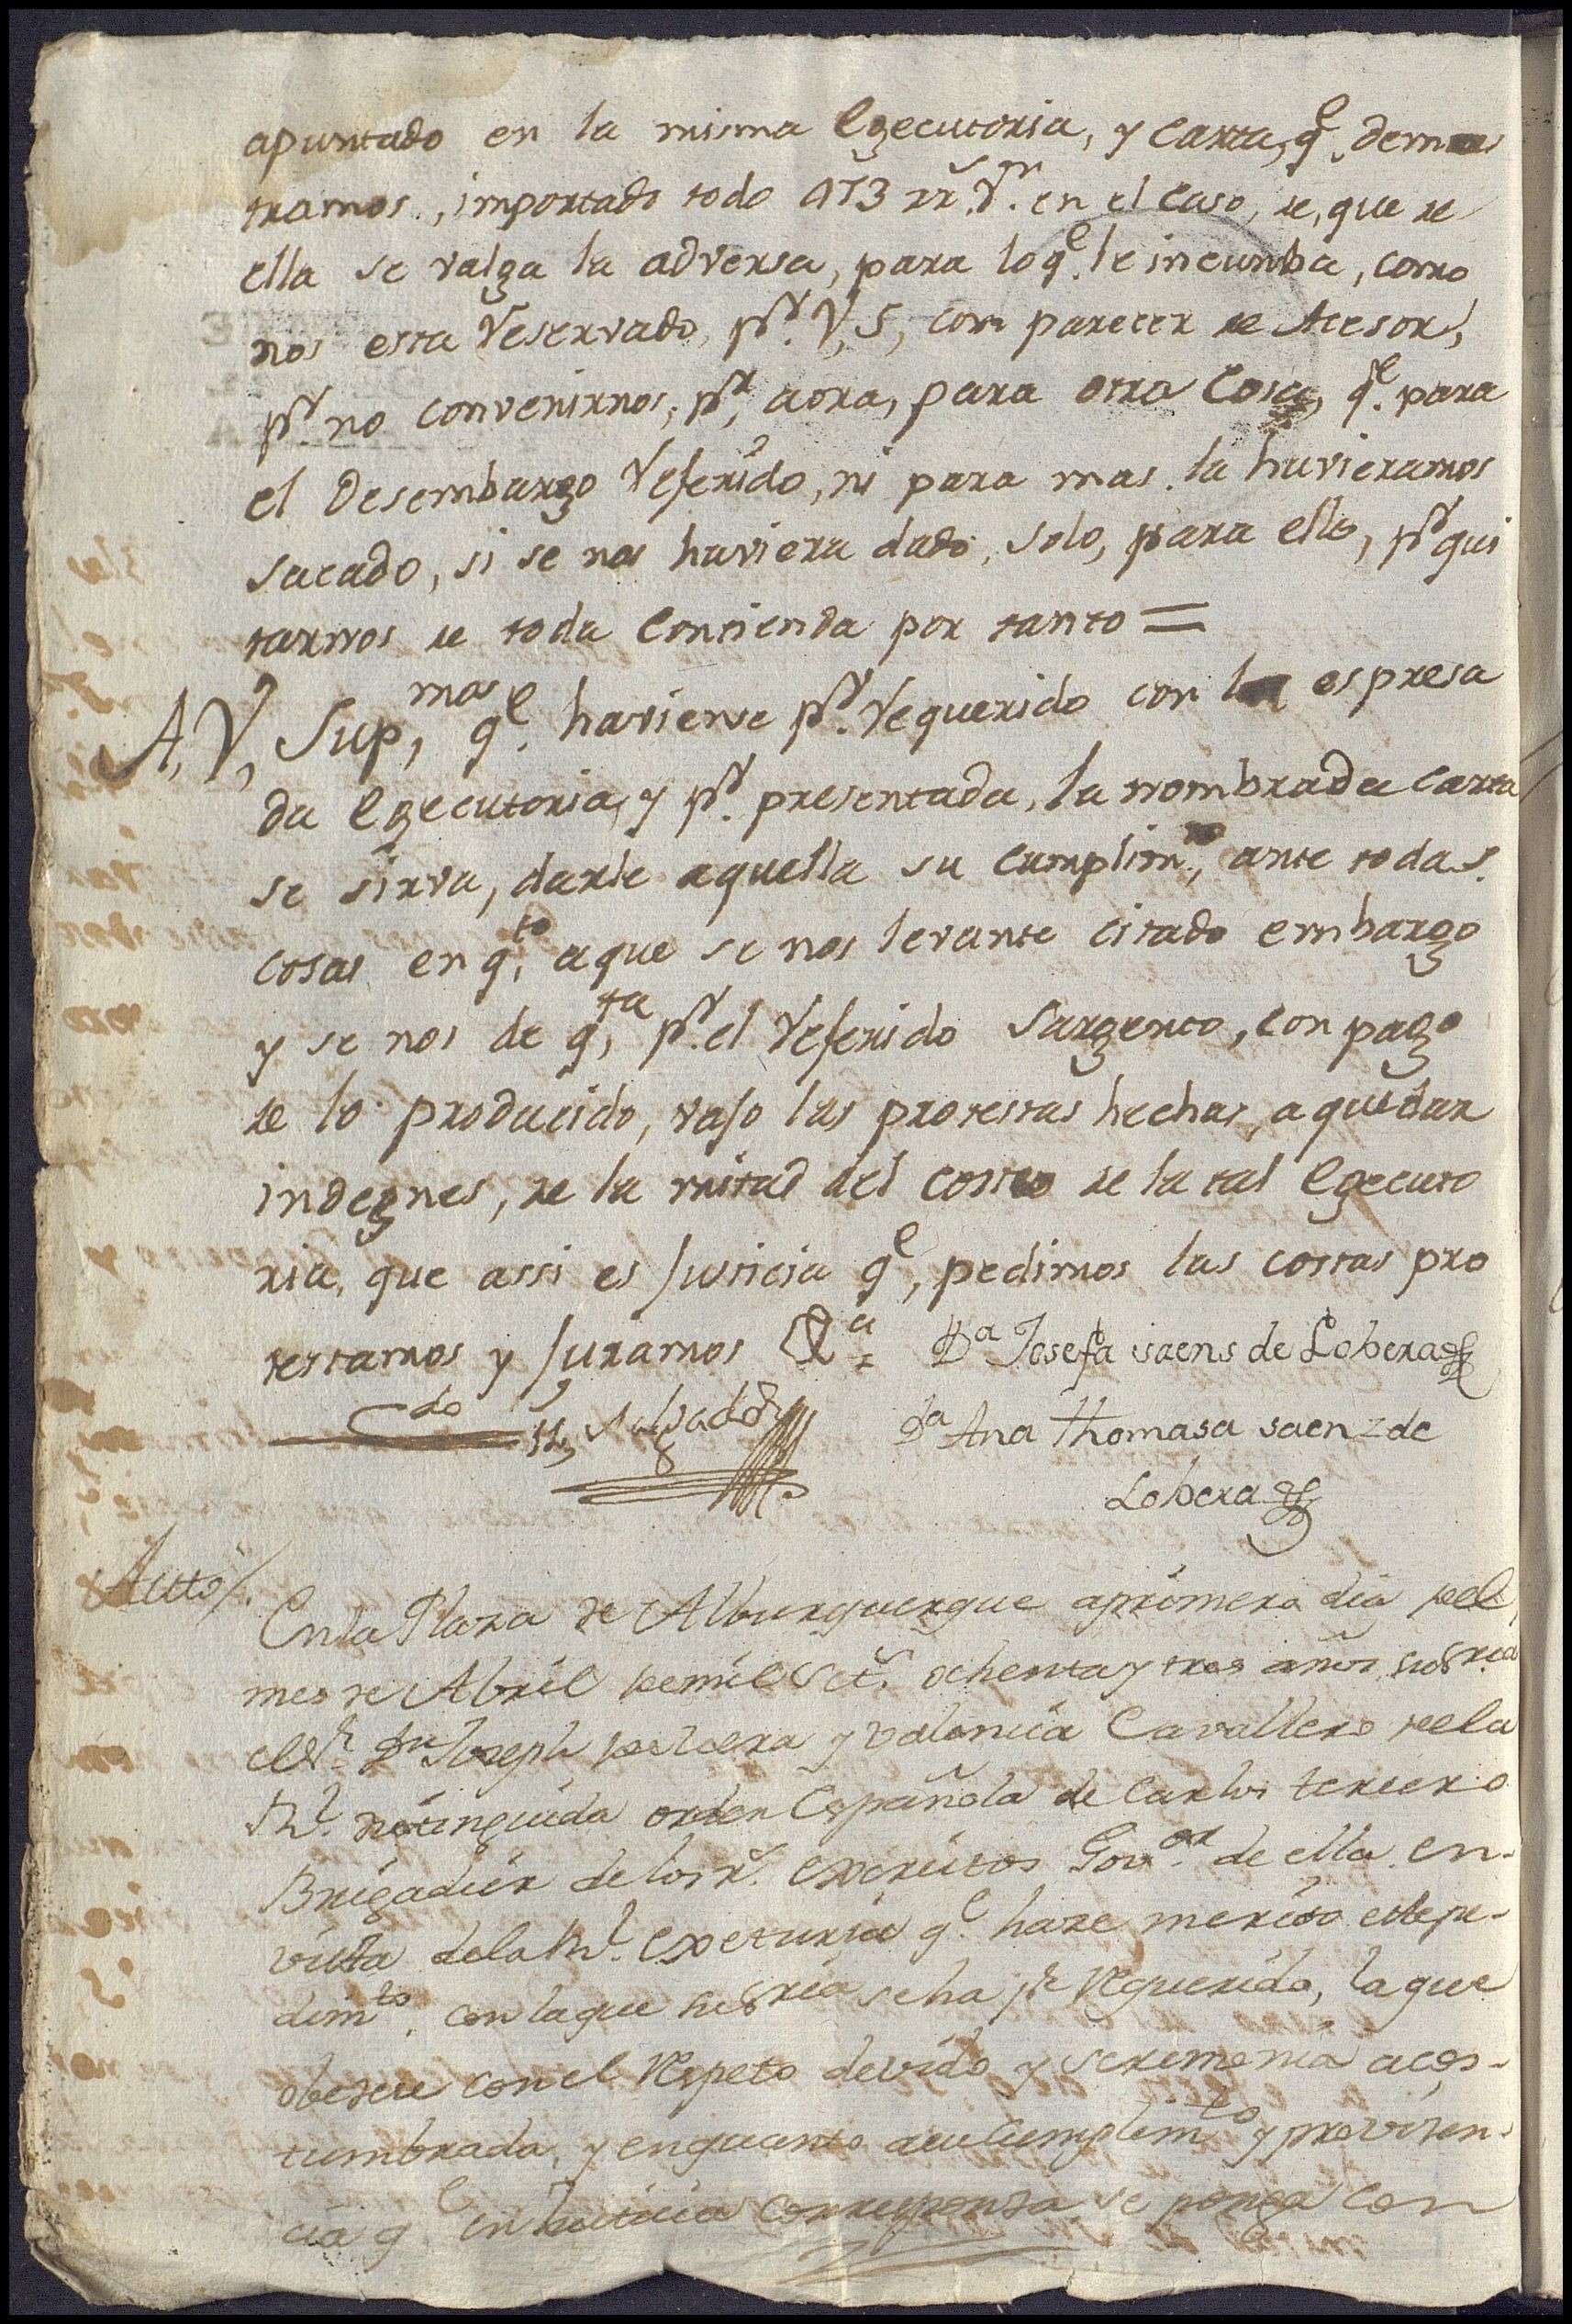 apuntado en la misma egecutoria, y carta, qe. demos
tramos, importado todo 973 rrs. Vn. en el caso, de, que de
ella se valga la adversa, para lo qe. le incunba, como
nos esta reservado, pr. V, S, con parecer de Acesor,
pr. no convenirnos, pr, aora, para otra cosa, qe. para
el desembargo referido, ni para mas la huvieramos
sacado, si se nos huviera dado, solo, para ello, pr qui
tarnos de toda contienda por tanto =
A, V, Sup, mos qe. haviense pr. requerido con la espresa
da egecutoria, y pr. presentada, la nombrada carta
se sirva, darle aquella su cumplimto, ante todas
cosas en qto, a que se nos levante citado embargo
y se nos de qta, pr. el referido Sargento, con pago
de lo producido, vajo las protestas hechas, a quedar
indegnes, de la mitad del costeo de la tal egecuto
ria, que assi es Justicia qe, pedimos las costas pro
testamos y Juramos &a = Da Josefa saens de Lobera
do Salgado Da Ana Thomasa saenz de
Lobera
Auto/.
En la Plaza de Alburquerque a primero dia del
mes de Abril de mil Sets. ochenta y tres años su Sria
el Sr. Dn Joseph de Vera y Valencia Cavallero de la
Rl. distinguida orden Española de Carlos tercero
Brigadier de los Rs. Exercitos Govor. de ella. en
vista de la Rl. Executuria qe. haze merito este pe-
dimto. con la que su Sria se ha pr requerido, la que
obedece con el Respeto devido y seremonia acos-
tumbrada, y en quanto a su Cumplimto y providen-
cia qe en Justicia corresponda se ponga con